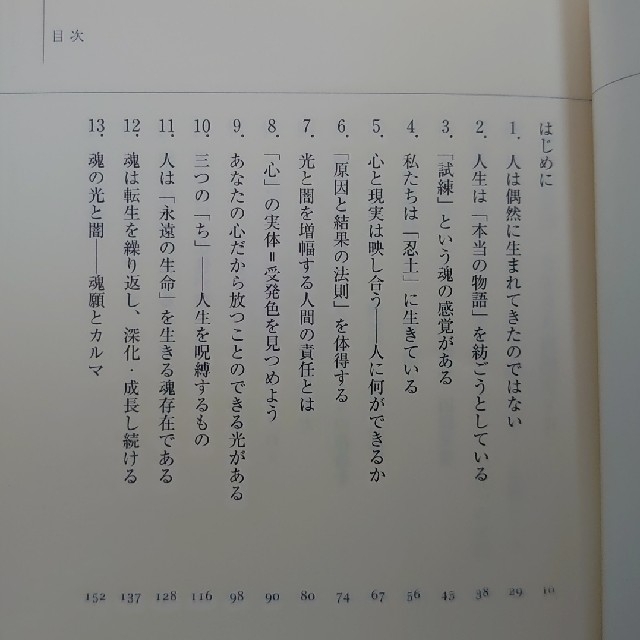 目次
はじめに 10
1. 人は偶然に生まれてきたのではない 29
2. 人生は「本当の物語」を紡ごうとしている 38
3. 「試練」という魂の感覚がある 45
4. 私たちは「忍土」に生きている 56
5. 心と現実は映し合う——人に何ができるか 67
6. 「原因と結果の法則」を体得する 74
7. 光と闇を増幅する人間の責任とは 80
8. 「心」の実体=受発色を見つめよう 90
9. あなたの心だから放つことのできる光がある 98
10. 三つの「ち」——人生を呪縛するもの 116
11. 人は「永遠の生命」を生きる魂存在である 128
12. 魂は転生を繰り返し、深化・成長し続ける 137
13. 魂の光と闇——魂願とカルマ 152